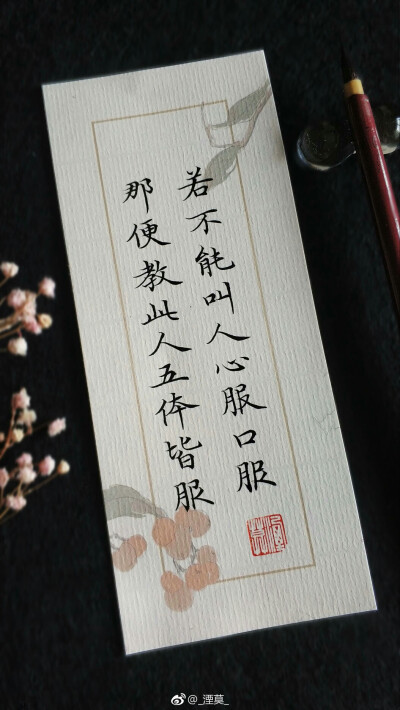 若不能叫人心服口服
那便教此人五体皆服
@_湮莫_